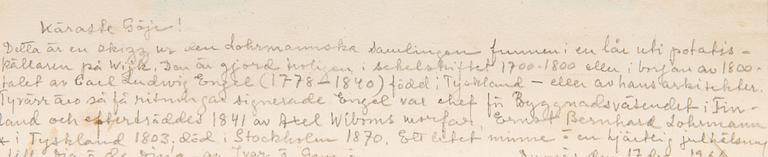 Käraste Göje!
Detta är en skizz ur den Lohrmannska samlingen funnen i en lår uti potatis-
källaren på Wijk. Den är gjord troligen i sekelskiftet 1700-1800 eller i början av 1800-
talet av Carl Ludvig Engel (1778-1840) född i Tyskland - eller av hans arkitekter.
Tyvärr äro så få ritningar signerade Engel var chef för Byggnadsväsendet i Fin-
land och efterträddes 1841 av Axel Wiboms morfar, Ernst Bernhard Lohrmann
* i Tyskland 1803, död i Stockholm 1870. Ett litet minne + en hjärtlig julhälsning
till